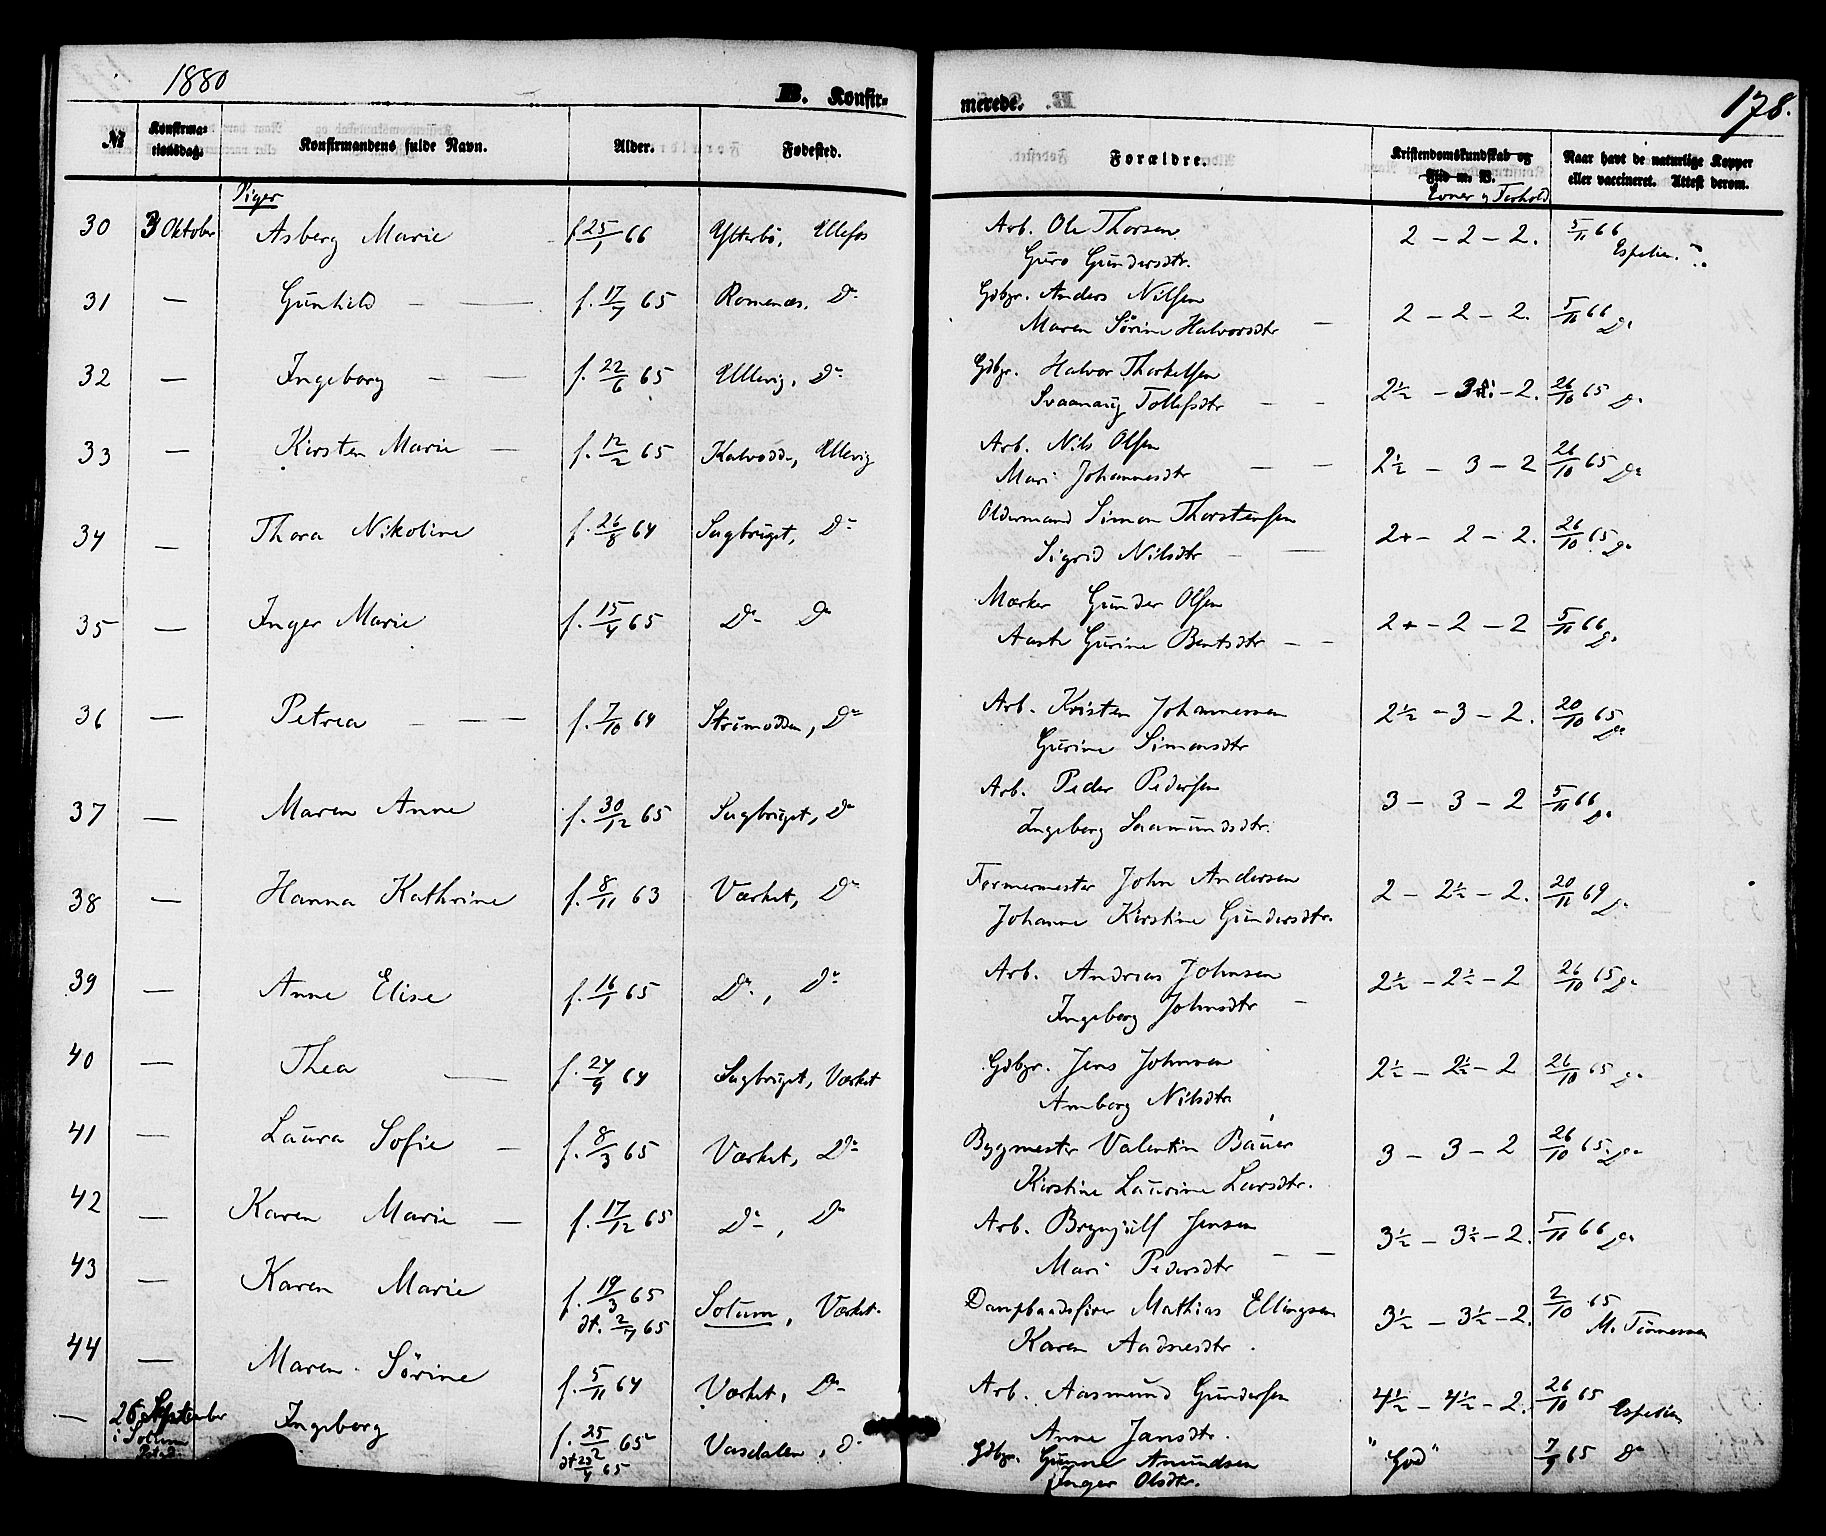 1880
B. Konfir-
merede.
178.
№ Konfirma-tionsdag. Konfirmandens fulde Navn. Alder. Fødested. Forældre. Kristendomskundskab og Flid m. V. Evner og Forhold Naar havt de naturlige Kopper eller vaccineret. Attest derom.
Piger
30 3 Oktober Asberg Marie f 25/1 66 Ytterbö, Ulefos Arb. Ole Thorsen 2 - 2 - 2. 5/11 66 Espelien
Guro Gundersdtr.
31 — Gunhild — f. 17/7 65 Romenæs. Do Gdbr. Anders Nilsen 2 - 2 - 2. 5/11 66 Do
Maren Sörine Halvorsdtr —
32 — Ingeborg — — f. 22/6 65 Ullevig, Do Gdbr. Halvor Thorkelsen 2½ - 3 - 2. 26/10 65 Do
Svaanaug Tollefsdtr — —
33 — Kirsten Marie — f. 12/2 65 Kalvodd., Ullevig Arb. Nils Olsen 2½ - 3 - 2 26/10 65 Do
Mari Johannesdtr — —
34 — Thora Nikoline f. 26/8 64 Sagbruget, Do Oldermand Simon Thorstensen 2+ - 2 - 2. 26/10 65 Do
Sigrid Nilsdtr — —
35 — Inger Marie f. 15/4 65 Do Do Mærker Gunder Olsen 2+ - 2 - 2 5/11 66 Do
Aaste Gurine Bentsdtr — —
36 — Petrea — — — f. 7/10 64 Strömodden, Do Arb. Kristen Johannessen 2½ - 3 - 2. 20/10 65 Do
Gurine Simonsdtr
37 — Maren Anne f. 30/12 65 Sagbruget, Do Arb. Peder Pedersen 3 - 3 - 2 5/11 66 Do
Ingeborg Saamundsdtr.
38 — Hanna Kathrine f. 8/11 63 Værket, Do Formermester John Andersen 2 - 2½ - 2. 20/11 69 Do
Johanne Kirstine Gundersdtr.
39 — Anne Elise f. 16/1 65 Do, Do Arb. Andreas Johnsen 2½ - 2½ - 2 26/10 65 Do
Ingeborg Johnsdtr —
40 — Thea — f. 24/9 64 Sagbruget, Værket Gdbr. Jens Johnsen 2½ - 2½ - 2 26/10 65 Do
Amborg Nilsdtr
41 — Laura Sofie — f. 8/3 65 Værket, Do Bygmester Valentin Bauer 3 - 3 - 2 26/10 65 Do
Kirstine Laurine Larsdtr.
42 — Karen Marie — f. 17/12 65 Do, Do Arb. Brynjulf Jensen 3½ - 3½ - 2. 5/11 66 Do
Mari Pedersdtr — —
43 — Karen Marie f. 19/3 65 Solum, Værket. Dampbaadsfører Mathias Ellingsen 3½ - 3½ - 2. 2/10 65
dt. 2/7 65 Karen Aadnesdtr.
44 — Maren Sörine f. 5/11 64 Værket, Do Arb. Aasmund Gundersen 4½ - 4½ - 2. 26/10 65 Espelien
Anne Jansdtr.
— 26 September Ingeborg f. 25/2 65 Vasdalen, Do Gdbr. Gunne Amundsen "God" 7/9 65 Do
i Solum dt 23/4 65 Inger Olsdtr.